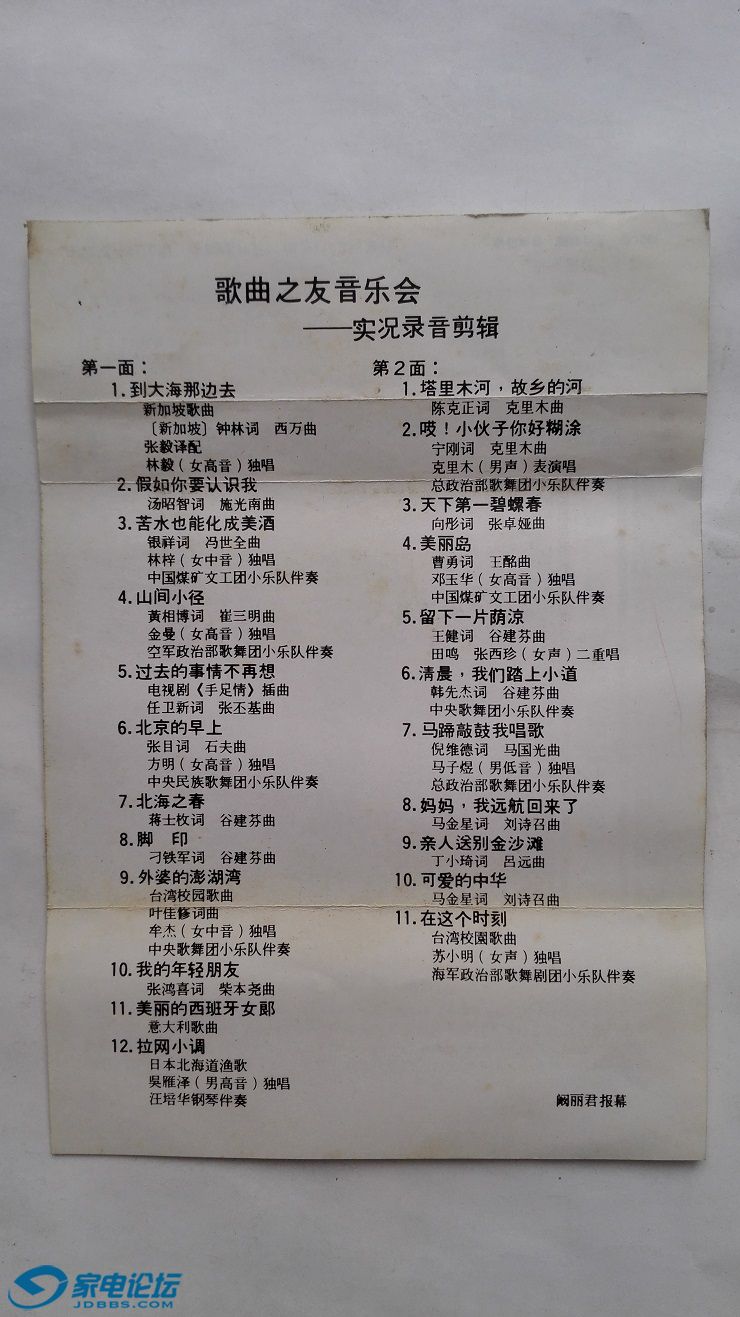 歌曲之友音乐会
——实况录音剪辑
第一面：
1.到大海那边去
新加坡歌曲
〔新加坡〕钟林词　西万曲
张毅译配
林毅（女高音）独唱
2.假如你要认识我
汤昭智词　施光南曲
3.苦水也能化成美酒
银祥词　冯世全曲
林梓（女中音）独唱
中国煤矿文工团小乐队伴奏
4.山间小径
黄相博词　崔三明曲
金曼（女高音）独唱
空军政治部歌舞团小乐队伴奏
5.过去的事情不再想
电视剧《手足情》插曲
任卫新词　张丕基曲
6.北京的早上
张目词　石夫曲
方明（女高音）独唱
中央民族歌舞团小乐队伴奏
7.北海之春
蒋士枚词　谷建芬曲
8.脚　印
刁铁军词　谷建芬曲
9.外婆的澎湖湾
台湾校园歌曲
叶佳修词曲
牟杰（女中音）独唱
中央歌舞团小乐队伴奏
10.我的年轻朋友
张鸿喜词　柴本尧曲
11.美丽的西班牙女郎
意大利歌曲
12.拉网小调
日本北海道渔歌
吳雁泽（男高音）独唱
汪培华钢琴伴奏
第2面：
1.塔里木河，故乡的河
陈克正词　克里木曲
2.吱！小伙子你好糊涂
宁刚词　克里木曲
克里木（男声）表演唱
总政治部歌舞团小乐队伴奏
3.天下第一碧螺春
向彤词　张卓娅曲
4.美丽岛
曹勇词　王酩曲
邓玉华（女高音）独唱
中国煤矿文工团小乐队伴奏
5.留下一片荫涼
王健词　谷建芬曲
田鸣　张西珍（女声）二重唱
6.清晨，我们踏上小道
韩先杰词　谷建芬曲
中央歌舞团小乐队伴奏
7.马蹄敲鼓我唱歌
倪维德词　马国光曲
马子煜（男低音）独唱
总政治部歌舞团小乐队伴奏
8.妈妈，我远航回来了
马金星词　刘诗召曲
9.亲人送别金沙滩
丁小琦词　呂远曲
10.可爱的中华
马金星词　刘诗召曲
11.在这个时刻
台湾校園歌曲
苏小明（女声）独唱
海军政治部歌舞剧团小乐队伴奏
阚丽君报幕
家电论坛
JDBBS.COM